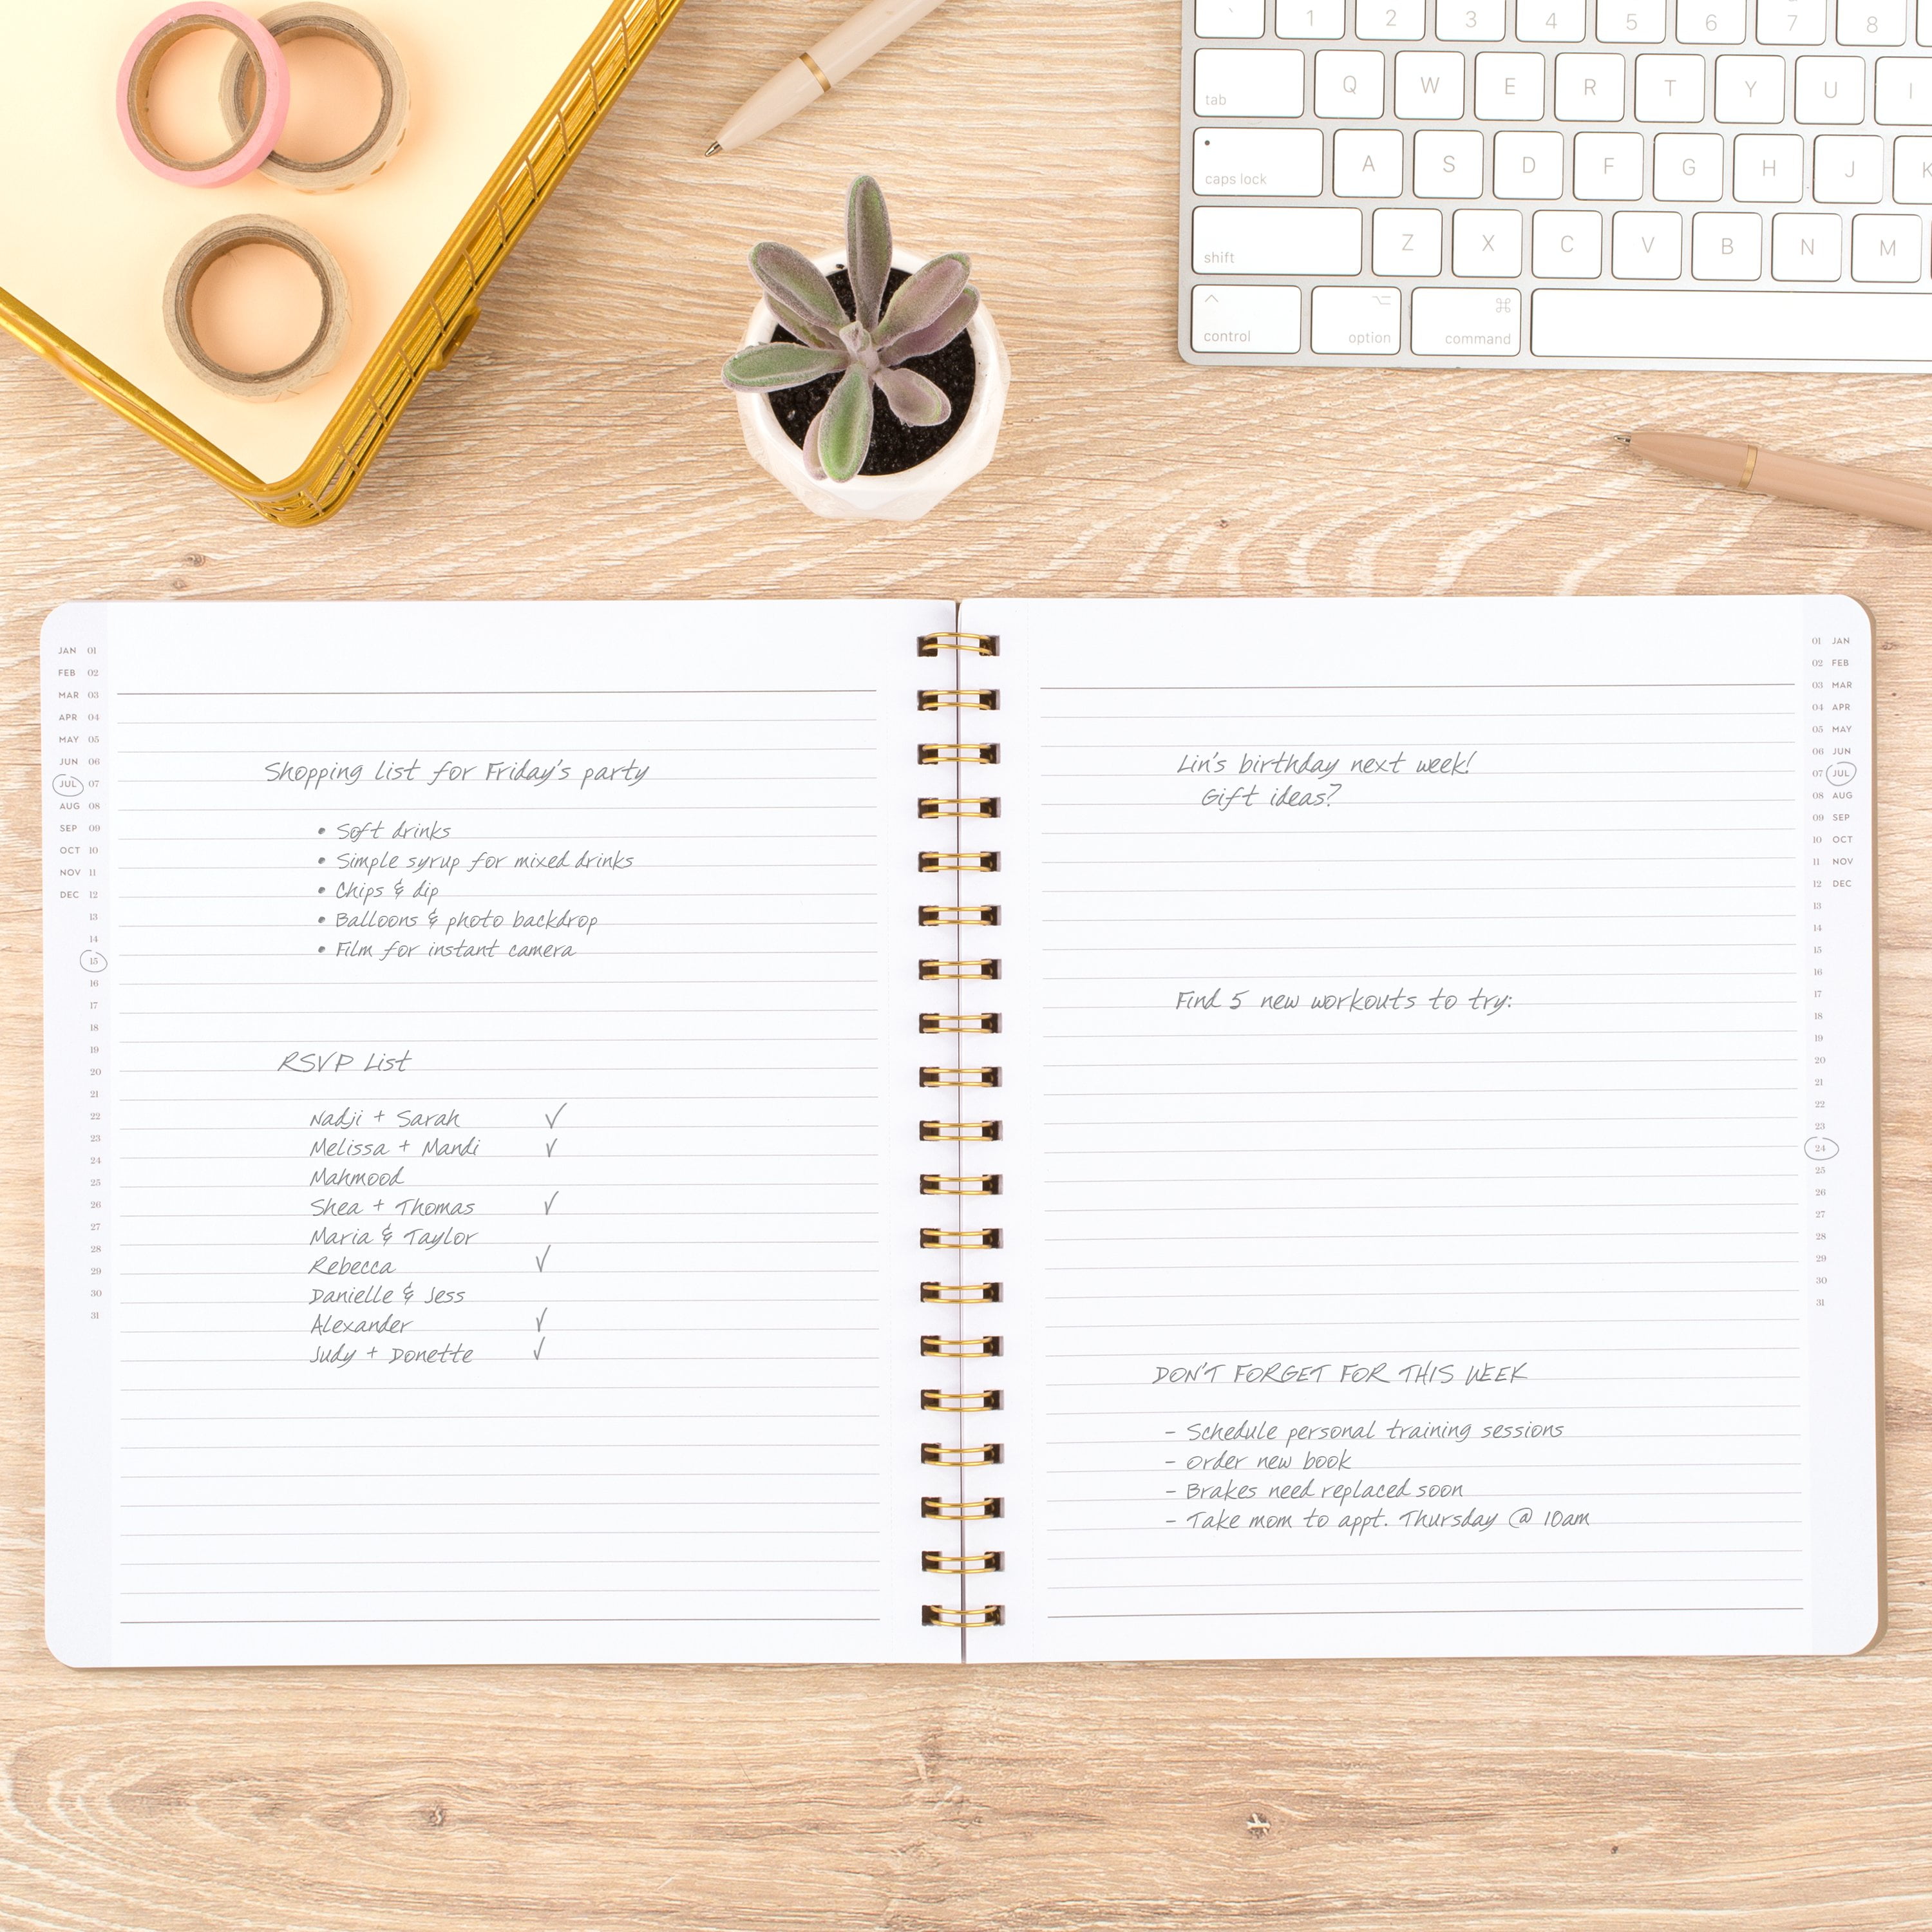 ` 1 2 3 4 5 6 7 8
tab Q W E R T Y U I
caps lock A S D F G H J K
shift Z X C V B N M
^ ⌥ ⌘
control option command
JAN 01
FEB 02
MAR 03
APR 04
MAY 05
JUN 06
JUL 07
AUG 08
SEP 09
OCT 10
NOV 11
DEC 12
13
14
15
16
17
18
19
20
21
22
23
24
25
26
27
28
29
30
31
Shopping list for Friday's party
• Soft drinks
• Simple syrup for mixed drinks
• Chips & dip
• Balloons & photo backdrop
• Film for instant camera
RSVP List
Nadji + Sarah ✓
Melissa + Mandi ✓
Mahmood
Shea + Thomas ✓
Maria & Taylor
Rebecca ✓
Danielle & Jess
Alexander ✓
Judy + Donette ✓
Lin's birthday next week!
Gift ideas?
Find 5 new workouts to try:
DON'T FORGET FOR THIS WEEK
- Schedule personal training sessions
- Order new book
- Brakes need replaced soon
- Take mom to appt. Thursday @ 10am
01 JAN
02 FEB
03 MAR
04 APR
05 MAY
06 JUN
07 JUL
08 AUG
09 SEP
10 OCT
11 NOV
12 DEC
13
14
15
16
17
18
19
20
21
22
23
24
25
26
27
28
29
30
31